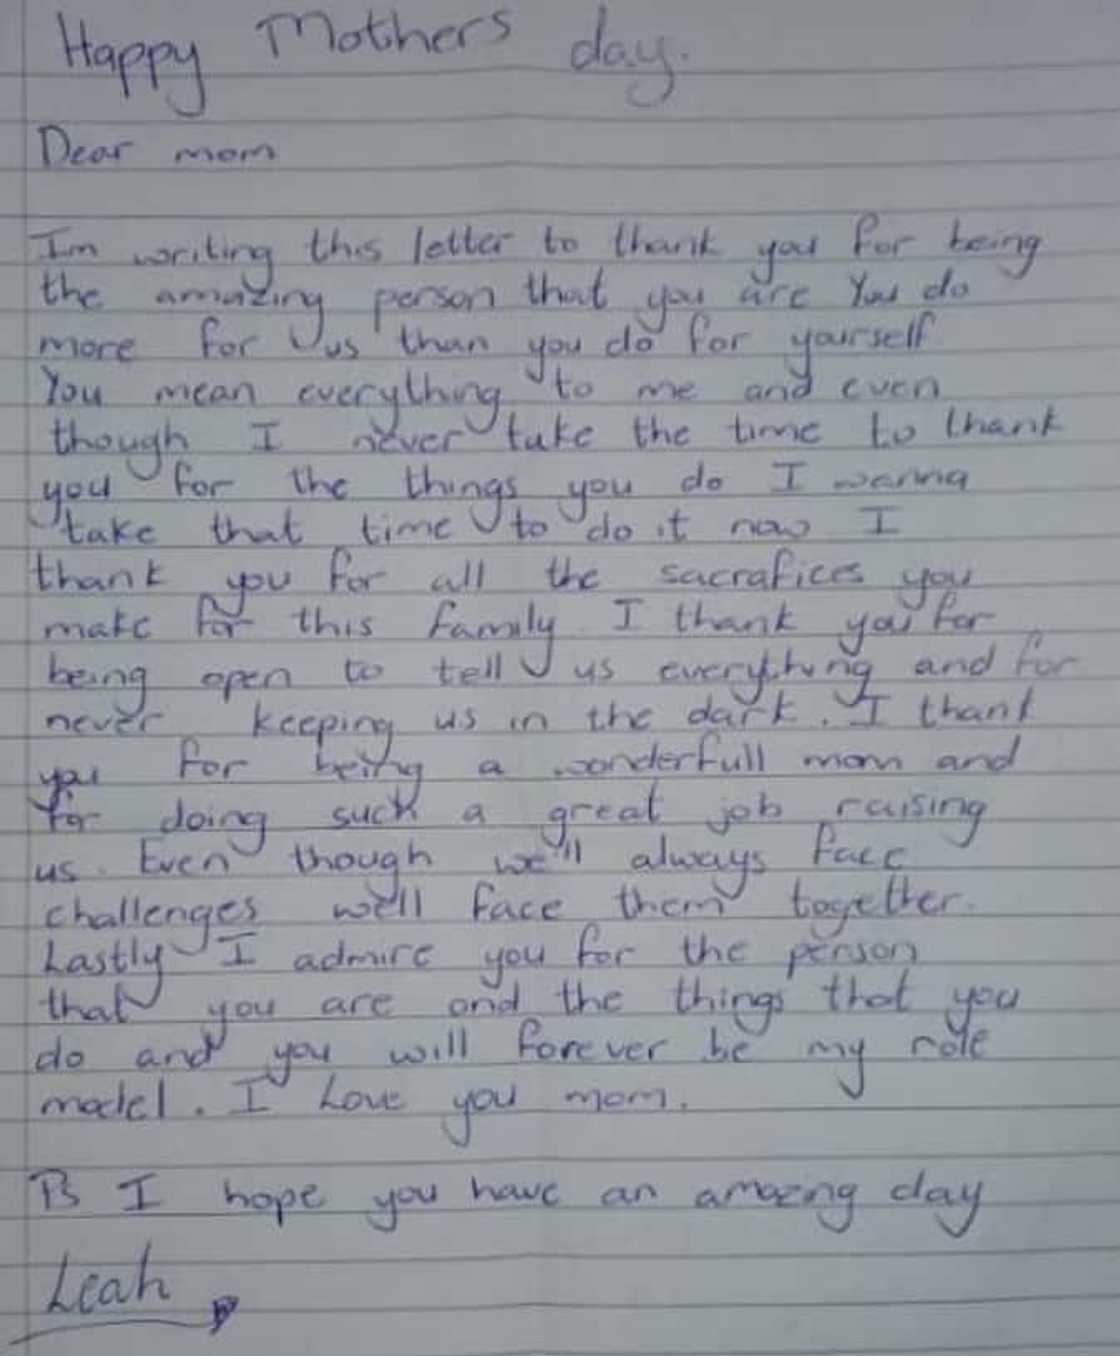 Happy Mothers day.
Dear mom
Im writing this letter to thank you for being
the amazing person that you are You do
more for us than you do for yourself
You mean everything to me and even
though I never take the time to thank
you for the things you do I wanna
take that time to do it now I
thank you for all the sacrafices you
make for this family. I thank you for
being open to tell us everything and for
never keeping us in the dark. I thank
you for being a wonderfull mom and
for doing such a great job raising
us. Even though we'll always face
challenges we'll face them together.
Lastly I admire you for the person
that you are and the things that you
do and you will forever be my role
model. I Love you mom.
PS I hope you have an amazing day
Leah